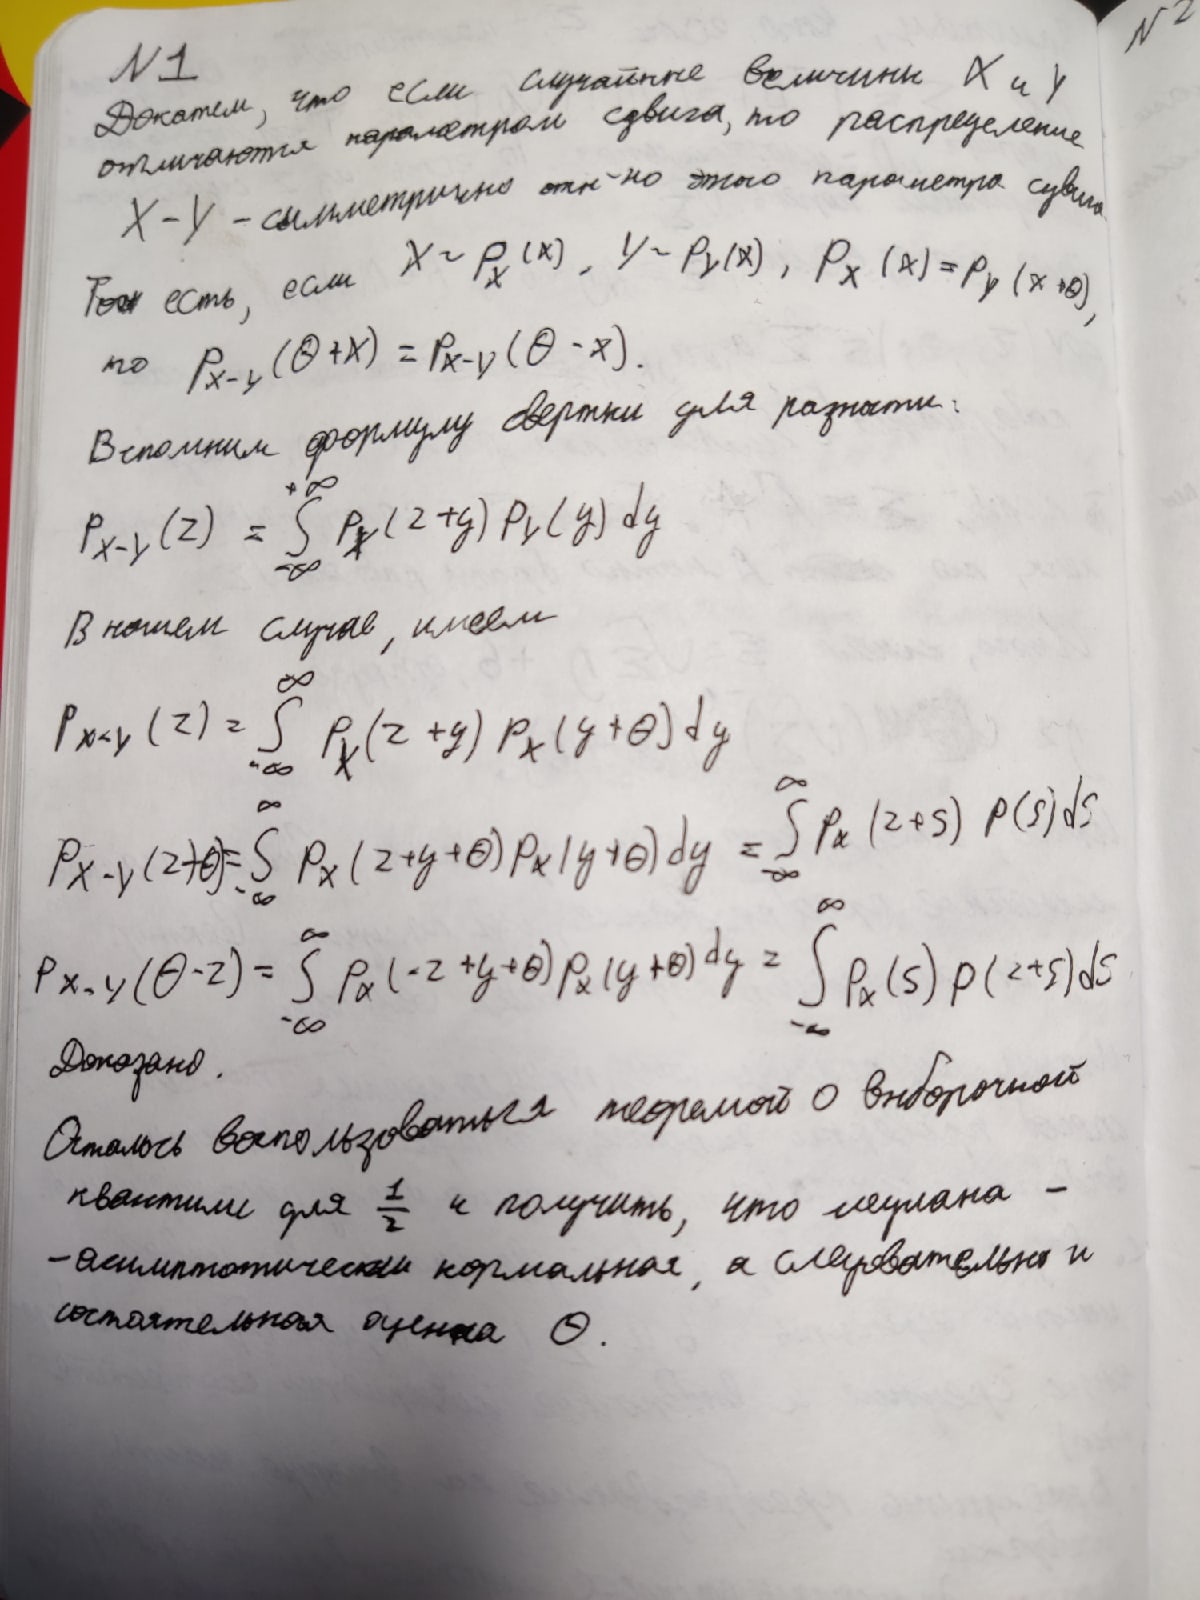 N1
Докажем, что если случайные величины X и Y
отличаются параметром сдвига, то распределение
X-Y - симметрично отн-но этого параметра сдвига
есть, если X ~ P_X(x), Y ~ P_Y(x), P_X(x) = P_Y(x+θ),
то P_{X-Y}(θ+x) = P_{X-Y}(θ-x).
Вспомним формулу свертки для разности:
P_{X-Y}(z) = ∫_{-∞}^{+∞} P_X(z+y) P_Y(y) dy
В нашем случае, имеем
P_{X-Y}(z) = ∫_{-∞}^{∞} P_X(z+y) P_X(y+θ) dy
P_{X-Y}(z+θ) = ∫_{-∞}^{∞} P_X(z+y+θ) P_X(y+θ) dy = ∫_{-∞}^{∞} P_X(z+s) P(s) ds
P_{X-Y}(θ-z) = ∫_{-∞}^{∞} P_X(-z+y+θ) P_X(y+θ) dy = ∫_{-∞}^{∞} P_X(s) P(z+s) ds
Доказано.
Осталось воспользоваться теоремой о выборочной
квантили для 1/2 и получить, что медиана -
- асимптотически нормальная, а следовательно и
состоятельная оценка θ.
N2